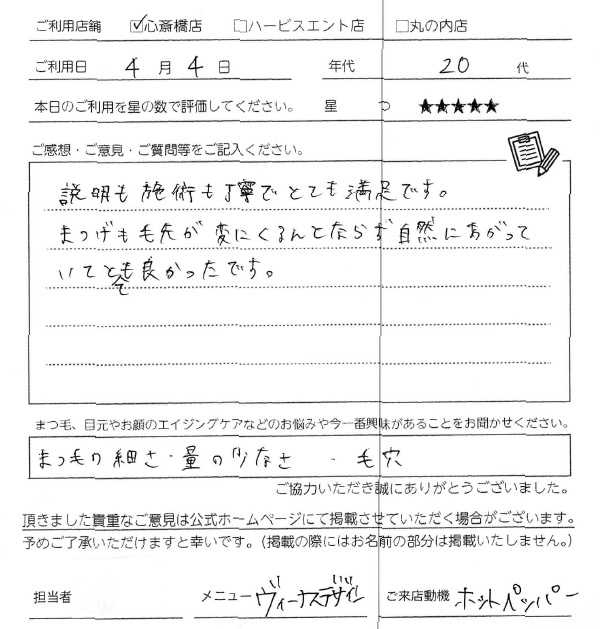 ご利用店舗 ☑心斎橋店 □ハービスエント店 □丸の内店
ご利用日 4 月 4 日 年代 20 代
本日のご利用を星の数で評価してください。 星 つ ★★★★★
ご感想・ご意見・ご質問等をご記入ください。
説明も施術も丁寧でとても満足です。
まつげも毛先が変にくるんとならず自然にあがって
いてとても良かったです。
まつ毛、目元やお顔のエイジングケアなどのお悩みや今一番興味があることをお聞かせください。
まつ毛の細さ・量の少なさ ・毛穴
ご協力いただき誠にありがとうございました。
頂きました貴重なご意見は公式ホームページにて掲載させていただく場合がございます。
予めご了承いただけますと幸いです。（掲載の際にはお名前の部分は掲載いたしません。）
担当者 メニュー ヴィーナスデザイン ご来店動機 ホットペッパー